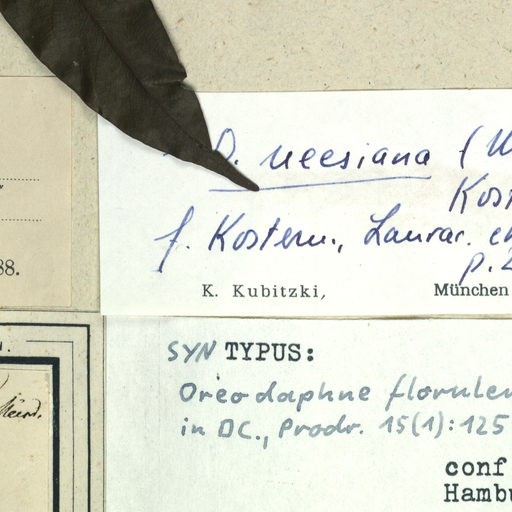 D. neesiana (
Kost
f. Kosterm., Laurac.
p. 2
88.
K. Kubitzki, München
SYN TYPUS:
Oreodaphne florulen
in DC., Prodr. 15(1):125
conf
Hambu